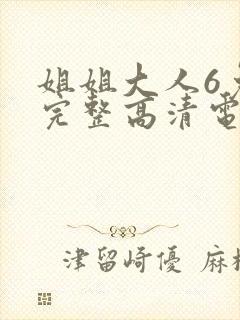 姐姐大人6
完整高清電
津留崎優 麻